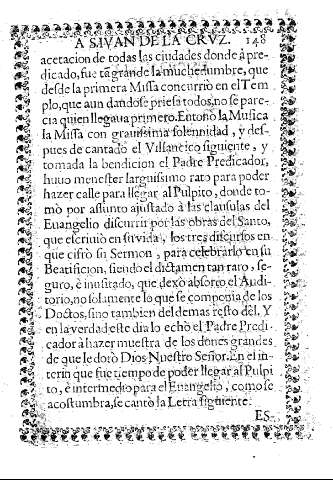 A S. IVAN DE LA CRVZ. 148
acetacion de todas las ciudades donde à pre-
dicado, fue tã grande la muchedumbre, que
desde la primera Missa concurriò en el Tem
plo, que aun dandose priesa todos, no se pare-
cia quien llegaua primero. Entonò la Musica
la Missa con grauissima solennidad, y des-
pues de cantado el Villancico siguiente, y
tomada la bendicion el Padre Predicador,
huuo menester larguissimo rato para poder
hazer calle para llegar al Pulpito, donde to-
mò por assunto ajustado à las clausulas del
Euangelio discurrir por las obras del Santo,
que escriuiò en su vida, los tres discursos en
que cifrò su Sermon, para celebrarlo en su
Beatificion, siendo el dictamen tan raro, se-
guro, è inusitado, que dexò absorto el Audi-
torio, no solamente lo que se componia de los
Doctos, sino tambien del demas resto dèl. Y
en la verdad este dia lo echò el Padre Predi-
cador à hazer muestra de los dones grandes
de que le dotò Dios Nuestro Señor. En el in-
terin que fue tiempo de poder llegar al Pulpi
to, è intermedio para el Euangelio, como se
acostumbra, se cantò la Letra siguiente.
ES-